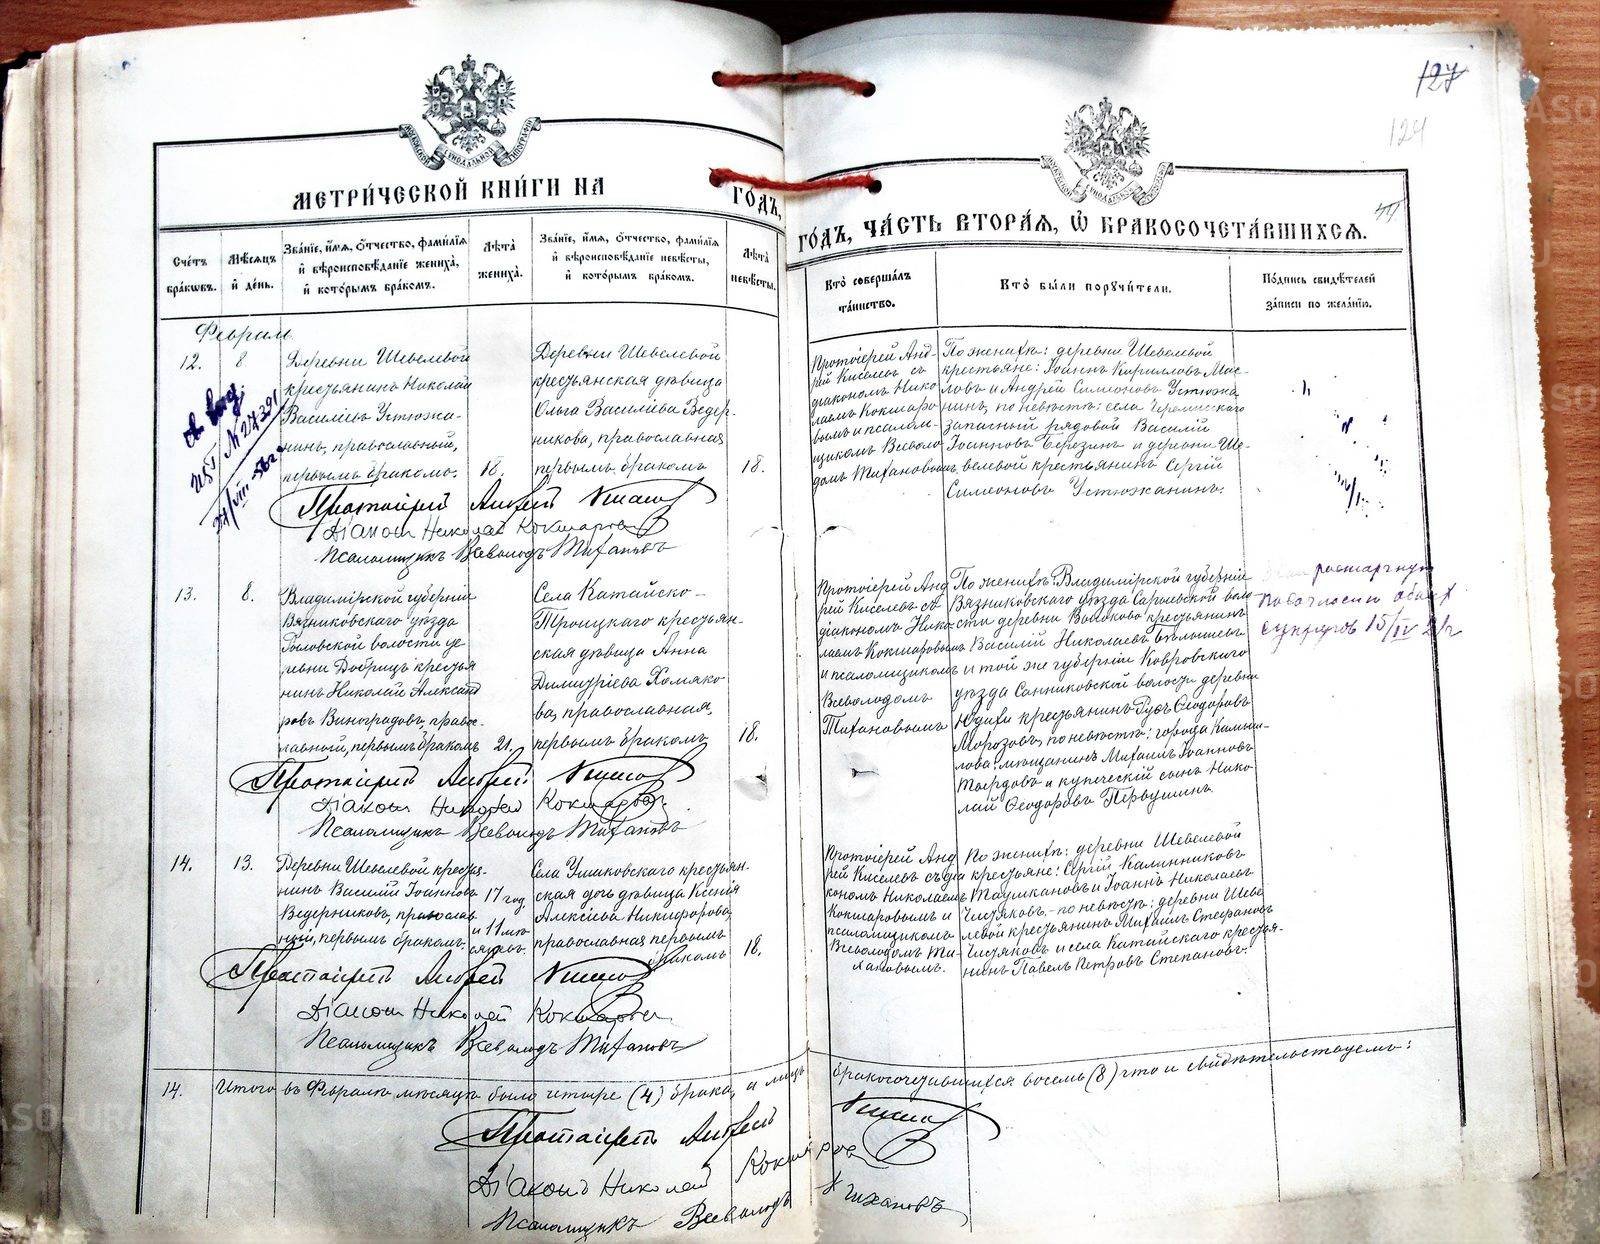 127
124
МЕТРИ́ЧЕСКОЙ КНИ́ГИ НА ГО́ДЪ,
ГО́ДЪ, ЧА́СТЬ ВТОРА́Я, Ѡ҆ БРАКОСОЧЕТА́ВШИХСЯ.
Сче́тъ бра́ковъ.
Мѣ́сяцъ и҆ де́нь.
Зва́нїе, и҆́мя, ѻ҆́тчество, фами́лїя и҆ вѣроисповѣ́данїе жениха̀, и҆ кото́рымъ бра́комъ.
Лѣ́та жениха̀.
Зва́нїе, и҆́мя, ѻ҆́тчество, фами́лїя и҆ вѣроисповѣ́данїе невѣ́сты, и҆ кото́рымъ бра́комъ.
Лѣ́та невѣ́сты.
Кто̀ соверша́лъ та́инство.
Кто̀ бы́ли поручи́тели.
По́дпись свидѣ́телей за́писи по жела́нїю.
Февраль
12.
8
Деревни Шевелевой
крестьянинъ Николай
Васильевъ Устюжа-
нинъ, православный,
первымъ бракомъ.
18.
Деревни Шевелевой
крестьянская дѣвица
Ольга Василіева Ведер-
никова, православная
первымъ бракомъ
18.
Протоіерей Анд-
рей Киселевъ съ
діакономъ Нико
лаемъ Кокшаро
вымъ и псалом-
щикомъ Всеволо
домъ Тихановымъ
По женихѣ: деревни Шевелевой
крестьяне: Іоаннъ Кирилловъ Мас-
ловъ и Андрей Симеоновъ Устюжа
нинъ, по невѣстѣ: села
запасный рядовой Василій
Іоанновъ Березинъ и деревни Ше-
велевой крестьянинъ Сергій
Симеоновъ Устюжанинъ.
№ 27391
Протоіерей Андрей Киселев
Діаконъ Николай Кокшаров
Псаломщикъ Всеволодъ Тихановъ
13.
8.
Владимірской губерніи
Вязниковскаго уѣзда
волости де
ревни Добрицъ крестья
нинъ Николай Александ
ровъ Виноградовъ, право-
лавный, первымъ бракомъ
21.
Села Катайско-
Троицкаго крестьян-
ская дѣвица Анна
Димитріева Хомяко-
ва, православная,
первымъ бракомъ
18.
Протоіерей Анд
рей Киселевъ съ
діакономъ Нико
лаемъ Кокшаровымъ
и псаломщикомъ
Всеволодомъ
Тихановымъ
По женихѣ: Владимірской губерніи
Вязниковскаго уѣзда Сарыевской воло
сти деревни крестьянинъ
Василій Николаевъ
и той же губерніи Ковровскаго
уѣзда Санниковской волости деревни
крестьянинъ Ѳеодоровъ
Морозовъ, по невѣстѣ: города Камыш-
лова мѣщанинъ Михаилъ Іоанновъ
Твердовъ и купеческій сынъ Нико-
лай Ѳеодоровъ Первушинъ.
обоих
супругов 15/IV 21 г
Протоіерей Андрей Киселев
Діаконъ Николай Кокшаров
Псаломщикъ Всеволодъ Тихановъ
14.
13.
Деревни Шевелевой кресть-
нинъ Василій Іоанновъ
Ведерниковъ, православ
ный, первымъ бракомъ.
17 год.
и 11 мѣ
сяцевъ.
Села Ушаковскаго крестьян-
ская дочь дѣвица Ксенія
Алексіева Никифорова,
православная первымъ
бракомъ
18.
Протоіерей Анд
рей Киселевъ съ діа
кономъ Николаемъ
Кокшаровымъ и
псаломщикомъ
Всеволодомъ Ти-
хановымъ.
По женихѣ: деревни Шевелевой
крестьяне: Сергій Калинниковъ
Таушкановъ и Іоаннъ Николаевъ
Чистяковъ, - по невѣстѣ: деревни Шеве
левой крестьянинъ Михаилъ Стефановъ
Чистяковъ и села Катайскаго крестья-
нинъ Павелъ Петровъ Степановъ.
Протоіерей Андрей Киселев
Діаконъ Николай Кокшаров
Псаломщикъ Всеволодъ Тихановъ
14.
Итого въ Февралѣ мѣсяцѣ было четыре (4) брака, а лицъ бракосочетавшихся восемь (8) что и свидѣтельствуемъ:
Протоіерей Андрей Киселев
Діаконъ Николай Кокшаров
Псаломщикъ Всеволодъ Тихановъ